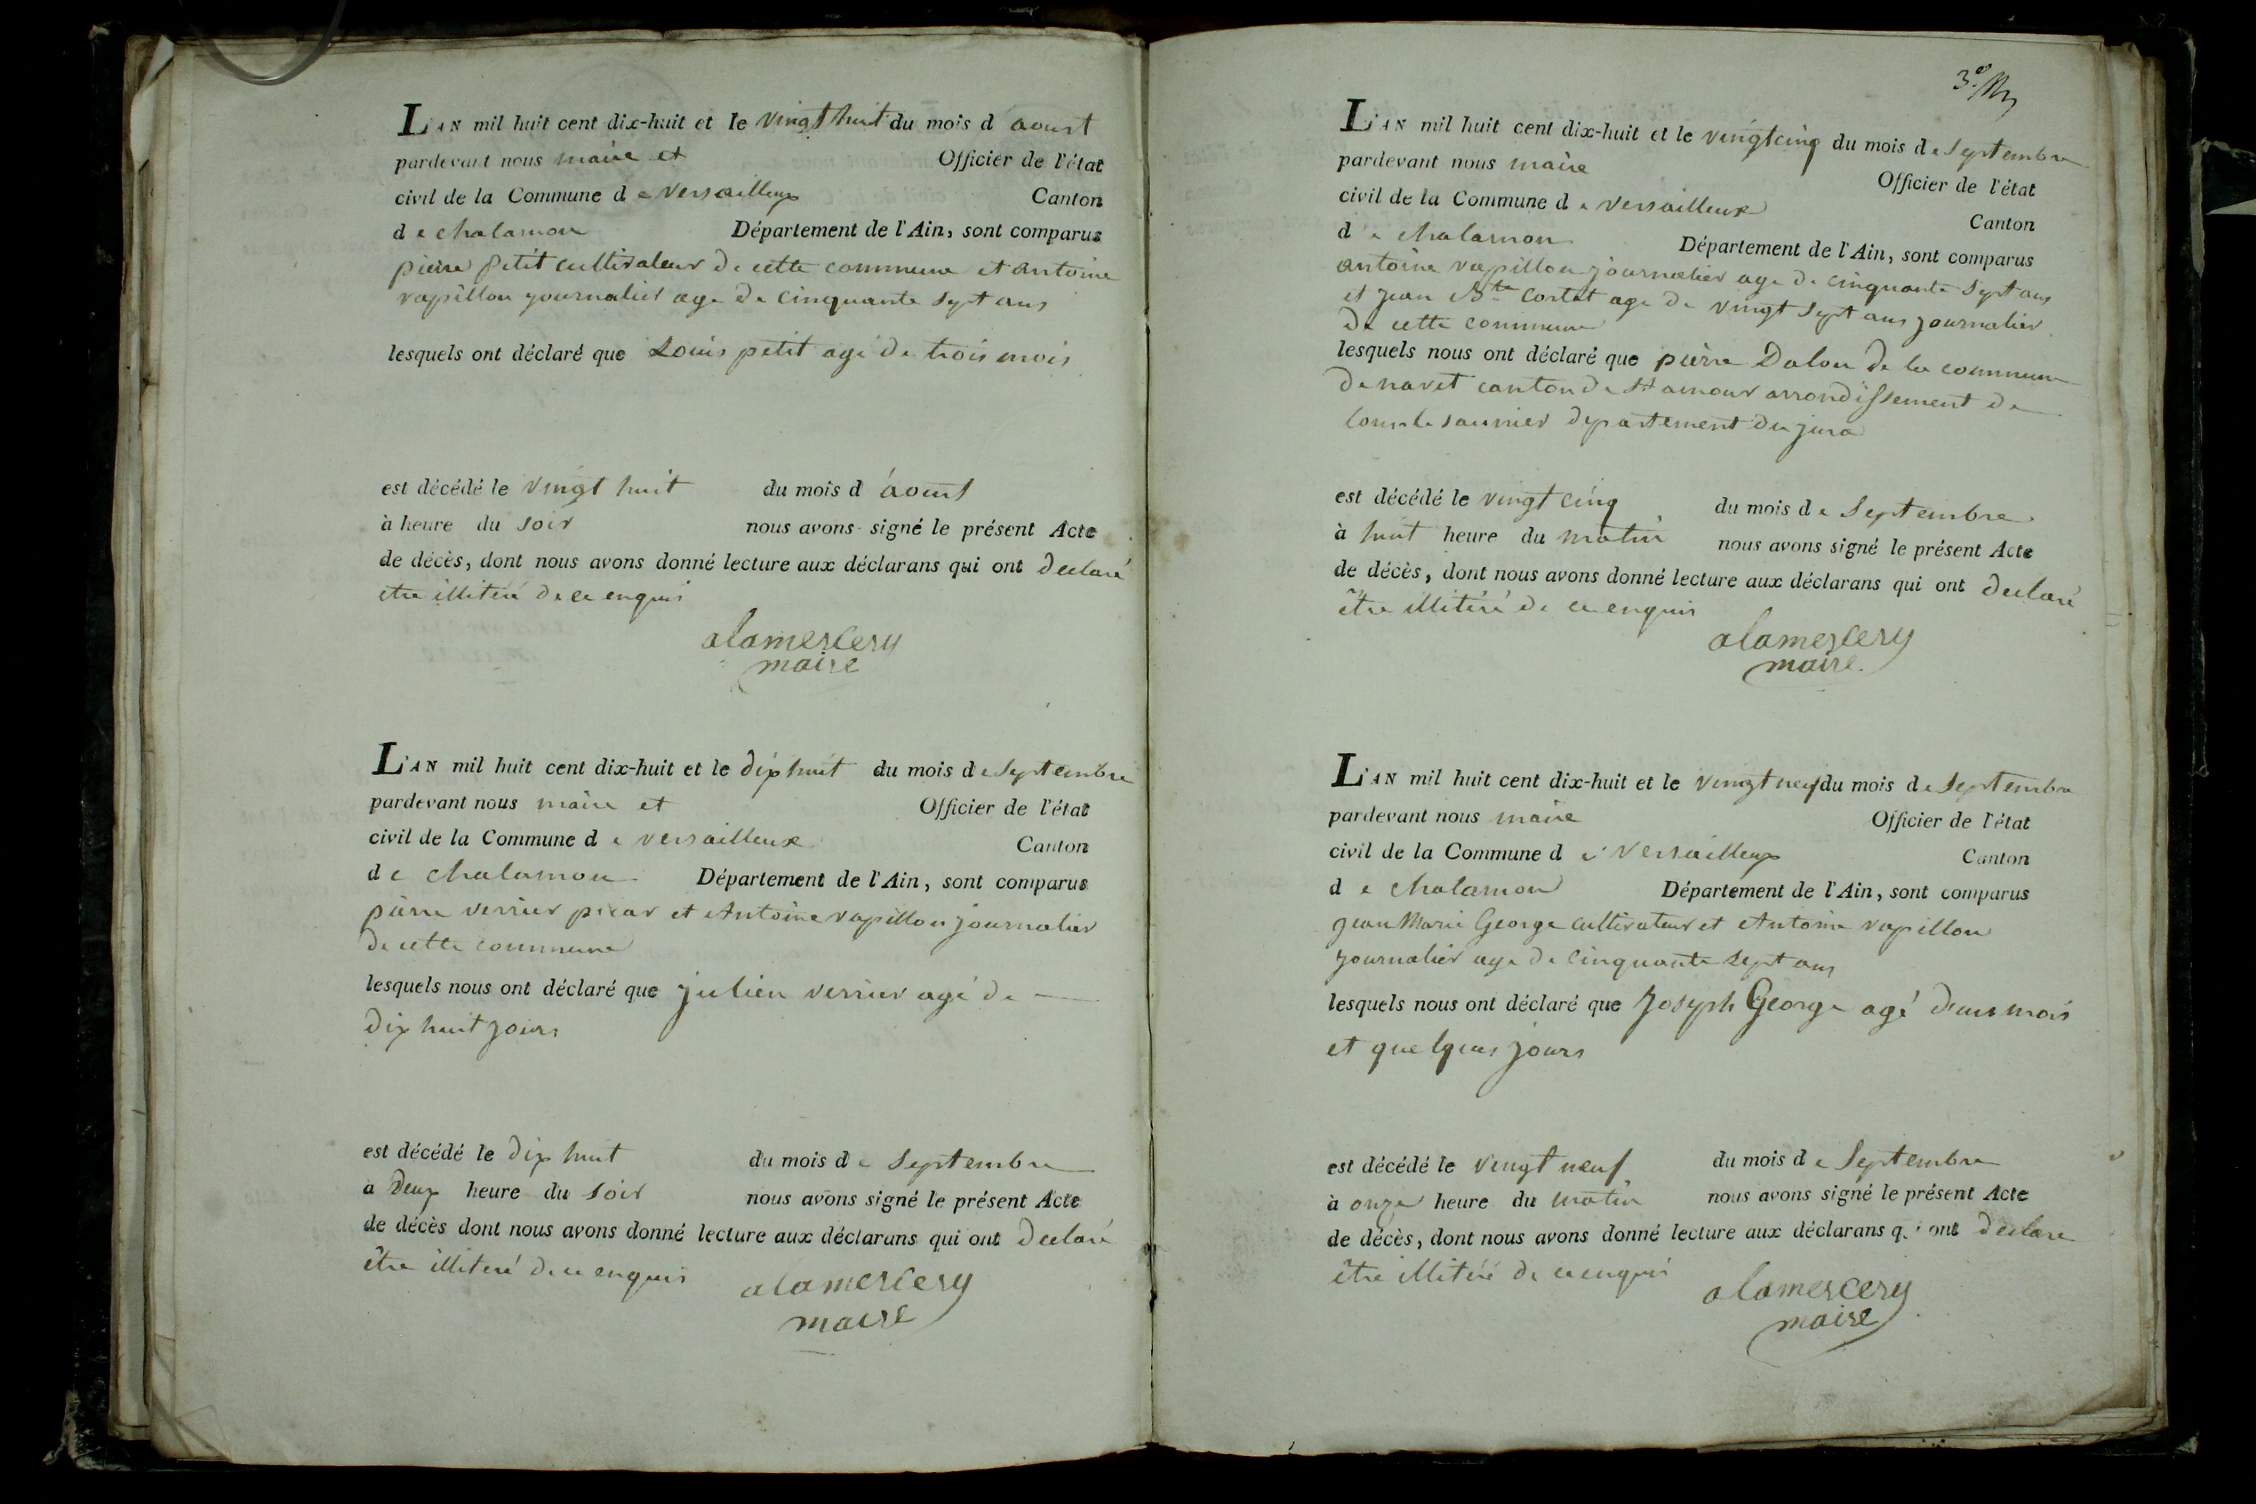 L'AN mil huit cent dix-huit et le vingt huit du mois d aoust
pardevant nous maire et Officier de l'état
civil de la Commune d e versailleux Canton
d e chalamon Département de l'Ain, sont comparus
pierre petit cultivateur de cette commune et antoine
vapillon journalier age de cinquante sept ans
lesquels ont déclaré que Louis petit agé de trois mois
est décédé le vingt huit du mois d aoust
à heure du soir nous avons signé le présent Acte
de décès, dont nous avons donné lecture aux déclarans qui ont declaré
etre illiteré de ce enquis
alamercery
maire
L'AN mil huit cent dix-huit et le dix huit du mois de septembre
pardevant nous maire et Officier de l'état
civil de la Commune d e versailleux Canton
d e chalamon Département de l'Ain, sont comparus
pierre verrier et Antoine vapillon journalier
de cette commune
lesquels nous ont déclaré que julien verrier agé de
dix huit jours
est décédé le dix huit du mois d e septembre
à deux heure du soir nous avons signé le présent Acte
de décès dont nous avons donné lecture aux déclarans qui ont declaré
être illiteré de ce enquis
alamercery
maire
3e
L'AN mil huit cent dix-huit et le vingt cinq du mois d e septembre
pardevant nous maire Officier de l'état
civil de la Commune d e versailleux Canton
d e chalamon Département de l'Ain, sont comparus
antoine vapillon journalier age de cinquante sept ans
et jean Bte cortet age de vingt sept ans journalier
de cette commune
lesquels nous ont déclaré que pierre Dalon de la commune
de canton de St amour arrondissement de
Lons le saunier departement du jura
est décédé le vingt cinq du mois d e septembre
à huit heure du matin nous avons signé le présent Acte
de décès, dont nous avons donné lecture aux déclarans qui ont declaré
être illitéré de ce enquis
alamercery
maire.
L'AN mil huit cent dix-huit et le vingt neuf du mois d e septembre
pardevant nous maire Officier de l'état
civil de la Commune d e versailleux Canton
d e chalamon Département de l'Ain, sont comparus
jean Marie George cultivateur et Antoine vapillon
journalier age de cinquante sept ans
lesquels nous ont déclaré que joseph George agé d'un mois
et quelques jours
est décédé le vingt neuf du mois d e septembre
à onze heure du matin nous avons signé le présent Acte
de décès, dont nous avons donné lecture aux déclarans qui ont declare
être illitéré de ce enquis
alamercery
maire